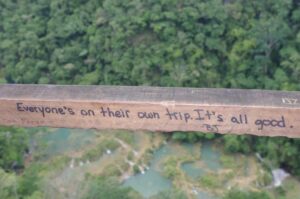 Everyone's on their own trip. It's all good.
BJ